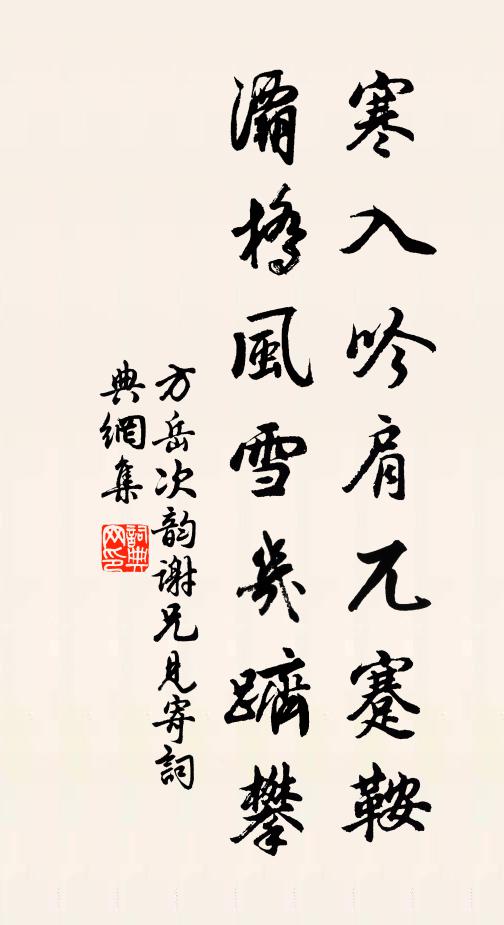 寒入吟肩兀蹇鞍
灞橋風雪幾躋攀
方岳次韵謝兄見寄詞
典網集
詞典網印